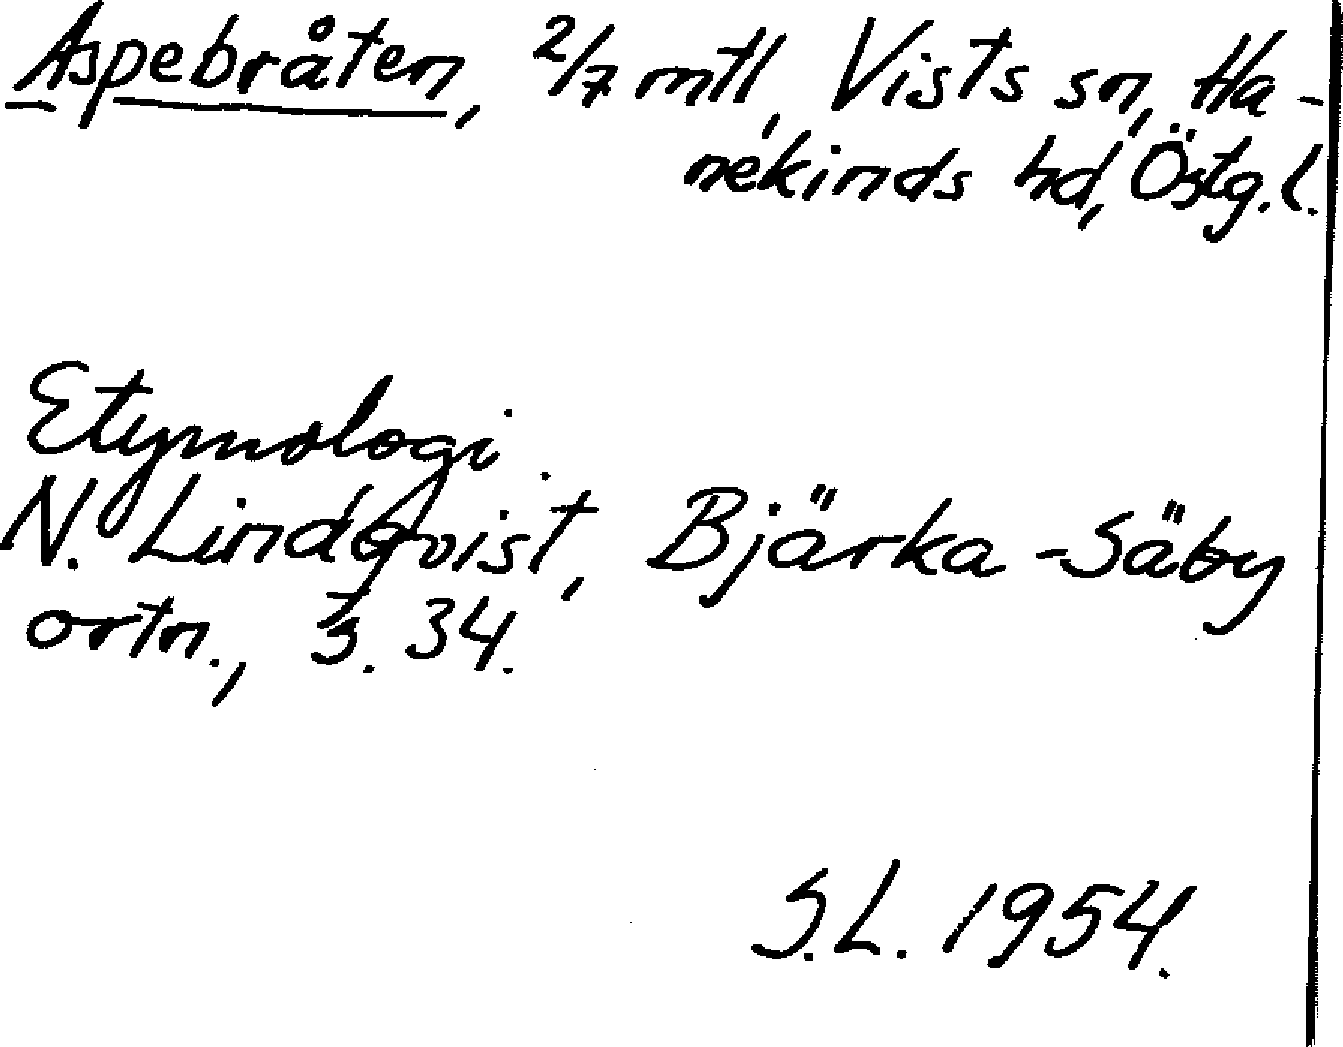 Aspebråten, 2/7 mtl, Vists sn, Ha-
nekinds hd, Östg.l.
Etymologi.
N. Lindqvist, Bjärka-Säby
ortn., s. 34.
S.L. 1954.